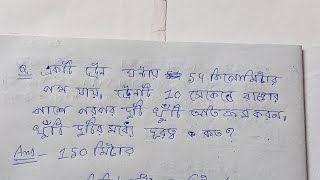 Q. একটি ট্রেন ঘন্টায় 54 কিলোমিটার
পথ যায়, ট্রেনটি 10 সেকেন্ডে রাস্তার
পাশে পরপর দুটি খুঁটি অতিক্রম করল,
খুঁটি দুটির মধ্যে দূরত্ব কত?
Ans - 150 মিটার